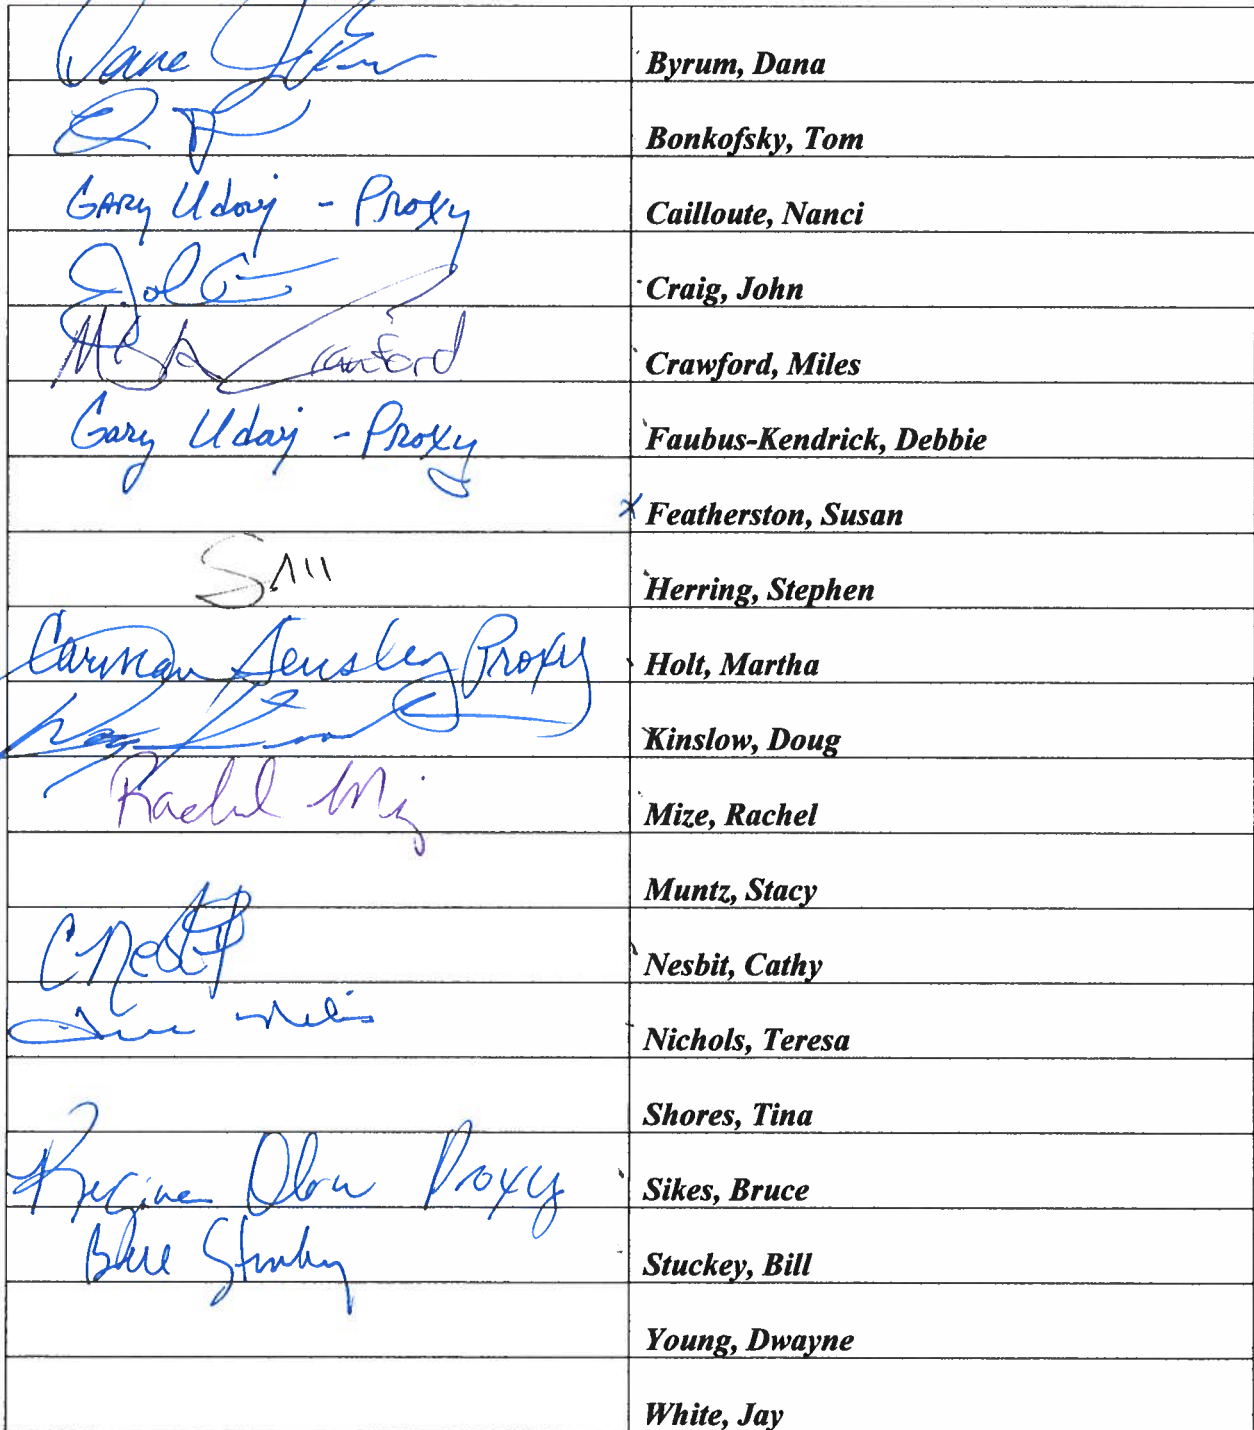 Byrum, Dana
Bonkofsky, Tom
Gary Udouj - Proxy Cailloute, Nanci
Craig, John
Crawford Crawford, Miles
Gary Udouj - Proxy Faubus-Kendrick, Debbie
x Featherston, Susan
Herring, Stephen
Proxy Holt, Martha
Kinslow, Doug
Rachel Mize, Rachel
Muntz, Stacy
CNesbit Nesbit, Cathy
Nichols, Teresa
Shores, Tina
Proxy Sikes, Bruce
Stuckey, Bill
Young, Dwayne
White, Jay